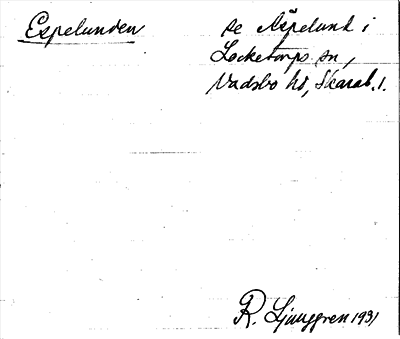 Espelunden
se Äspelund i
Locketorps sn,
Vadsbo hd, Skarab. l.
R. Ljunggren 1931